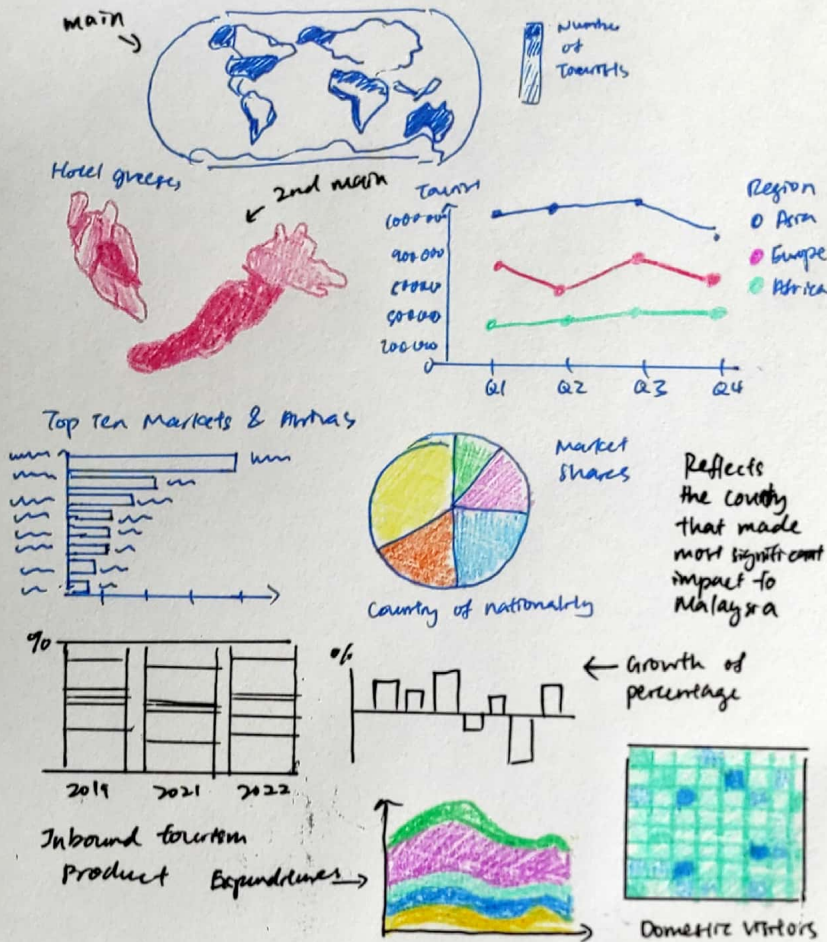 main
Number
of
Tourists
Hotel guests
2nd main
Tourist
Region
Asia
Europe
Africa
1000 000
900 000
200 000
0
Q1 Q2 Q3 Q4
Top Ten Markets &
Market
Shares
Country of nationality
Reflects
the county
that made
most significant
impact to
Malaysia
%
2019 2021 2022
%
← Growth of
percentage
Inbound tourism
Product Expenditures →
Domestic visitors